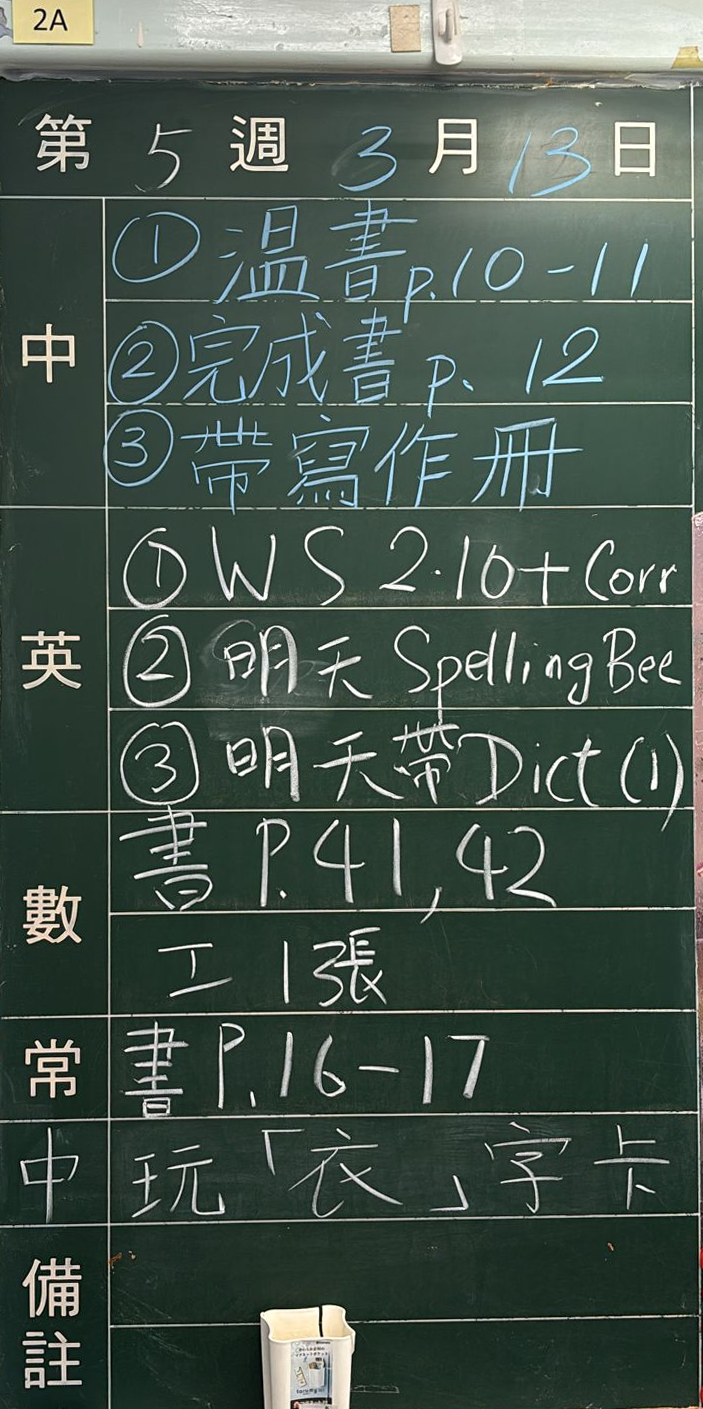 2A
第 5 週 3 月 13 日
中
① 溫書 p.10-11
② 完成書 p. 12
③ 帶寫作冊
英
① WS 2.10 + Corr
② 明天 Spelling Bee
③ 明天帶 Dict (1)
數
書 P.41, 42
工 1張
常
書 P.16-17
中
玩「衣」字卡
備註